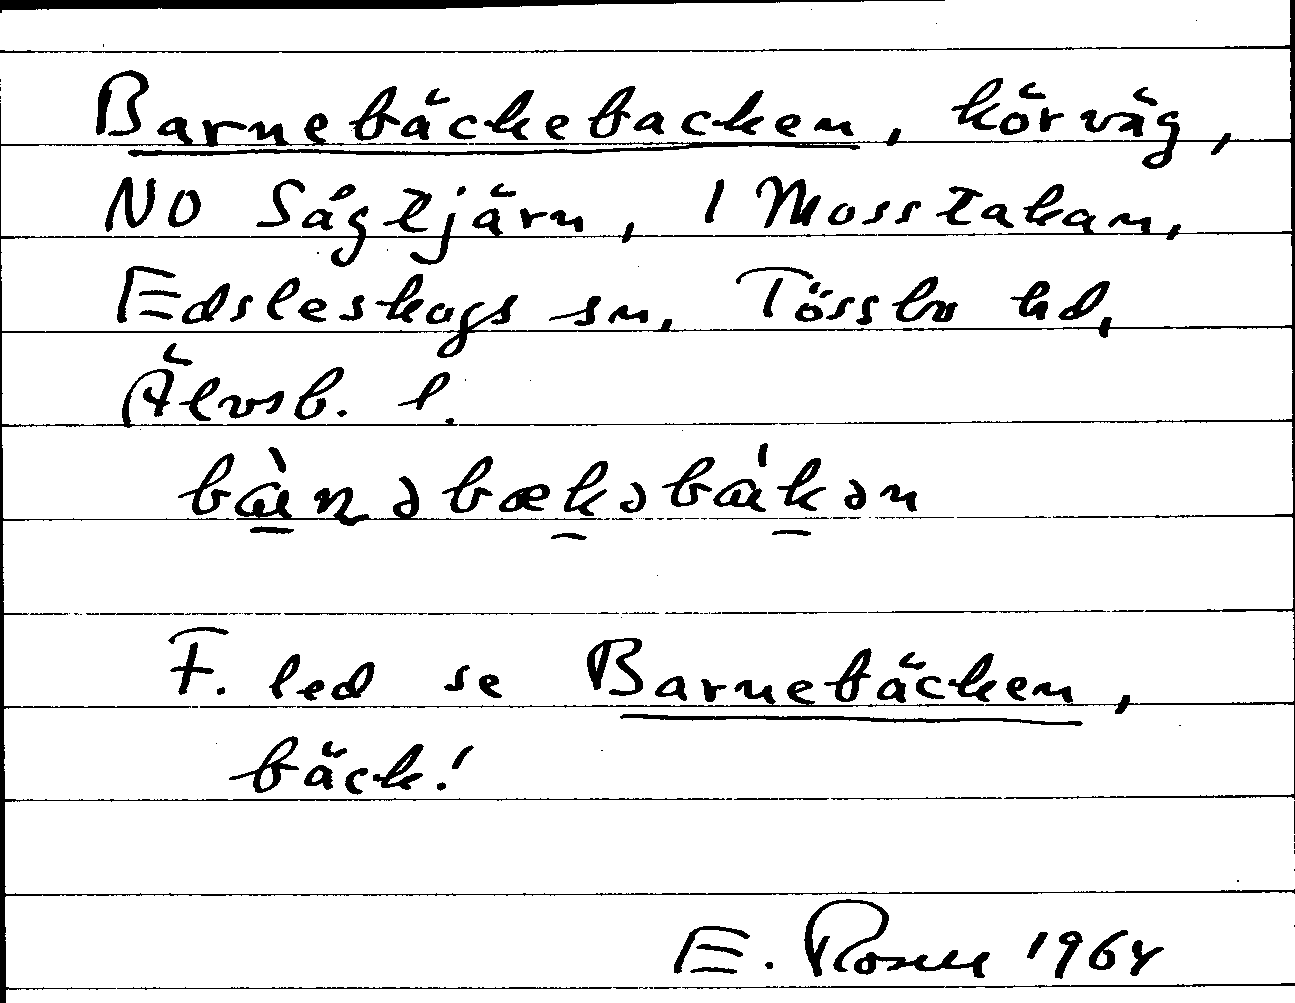 Barnebäckebacken, körväg,
NO Sågtjärn, 1 Mosstakan,
Edsleskogs sn, Tössbo hd,
Älvsb. l.
bàɳəbækəbákən
F. led se Barnebäcken,
bäck!
E. Rosell 1964